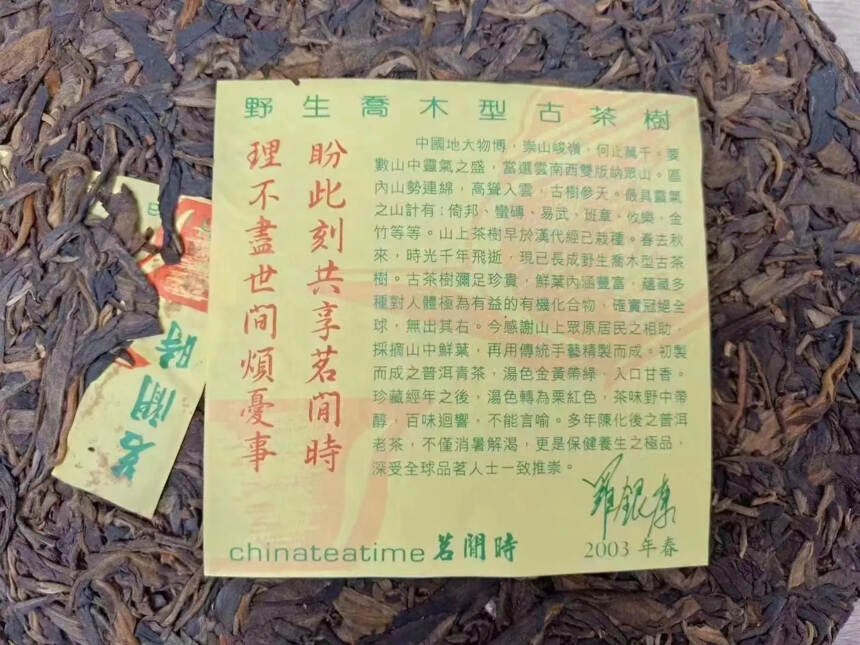 野生喬木型古茶樹
盼此刻共享茗閒時
理不盡世間煩憂事
中國地大物博，崇山峻嶺，何止萬千。要
數山中靈氣之盛，當選雲南西雙版納眾山。區
內山勢連綿，高聳入雲，古樹參天。最具靈氣
之山計有：倚邦、蠻磚、易武、班章、攸樂、金
竹等等。山上茶樹早於漢代經已栽種。春去秋
來，時光千年飛逝，現已長成野生喬木型古茶
樹。古茶樹彌足珍貴，鮮葉內涵豐富，蘊藏多
種對人體極為有益的有機化合物，確實冠絕全
球，無出其右。今感謝山上眾原居民之相助，
採摘山中鮮葉，再用傳統手藝精製而成。初製
而成之普洱青茶，湯色金黃帶綠，入口甘香。
珍藏經年之後，湯色轉為栗紅色，茶味野中帶
醇，百味迴響，不能言喻。多年陳化後之普洱
老茶，不僅消暑解渴，更是保健養生之極品，
深受全球品茗人士一致推崇。
羅銀康
chinateatime 茗閒時
2003 年春
茗閒時